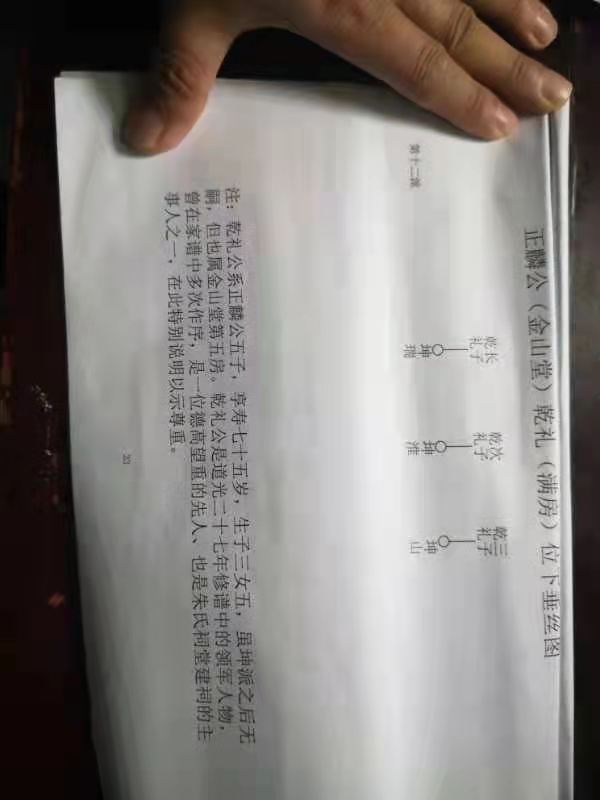 正麟公（金山堂）乾礼（满房）位下垂丝图
乾礼长子
乾礼次子
乾礼三子
第十二派
坤瑞
坤淮
坤山
注：乾礼公系正麟公五子，享寿七十五岁，生子三女五，虽坤派之后无
嗣，但也属金山堂第五房。乾礼公是道光二十七年修谱中的领军人物，
曾在家谱中多次作序，是一位德高望重的先人、也是朱氏祠堂建祠的主
事人之一，在此特别说明以示尊重。
33